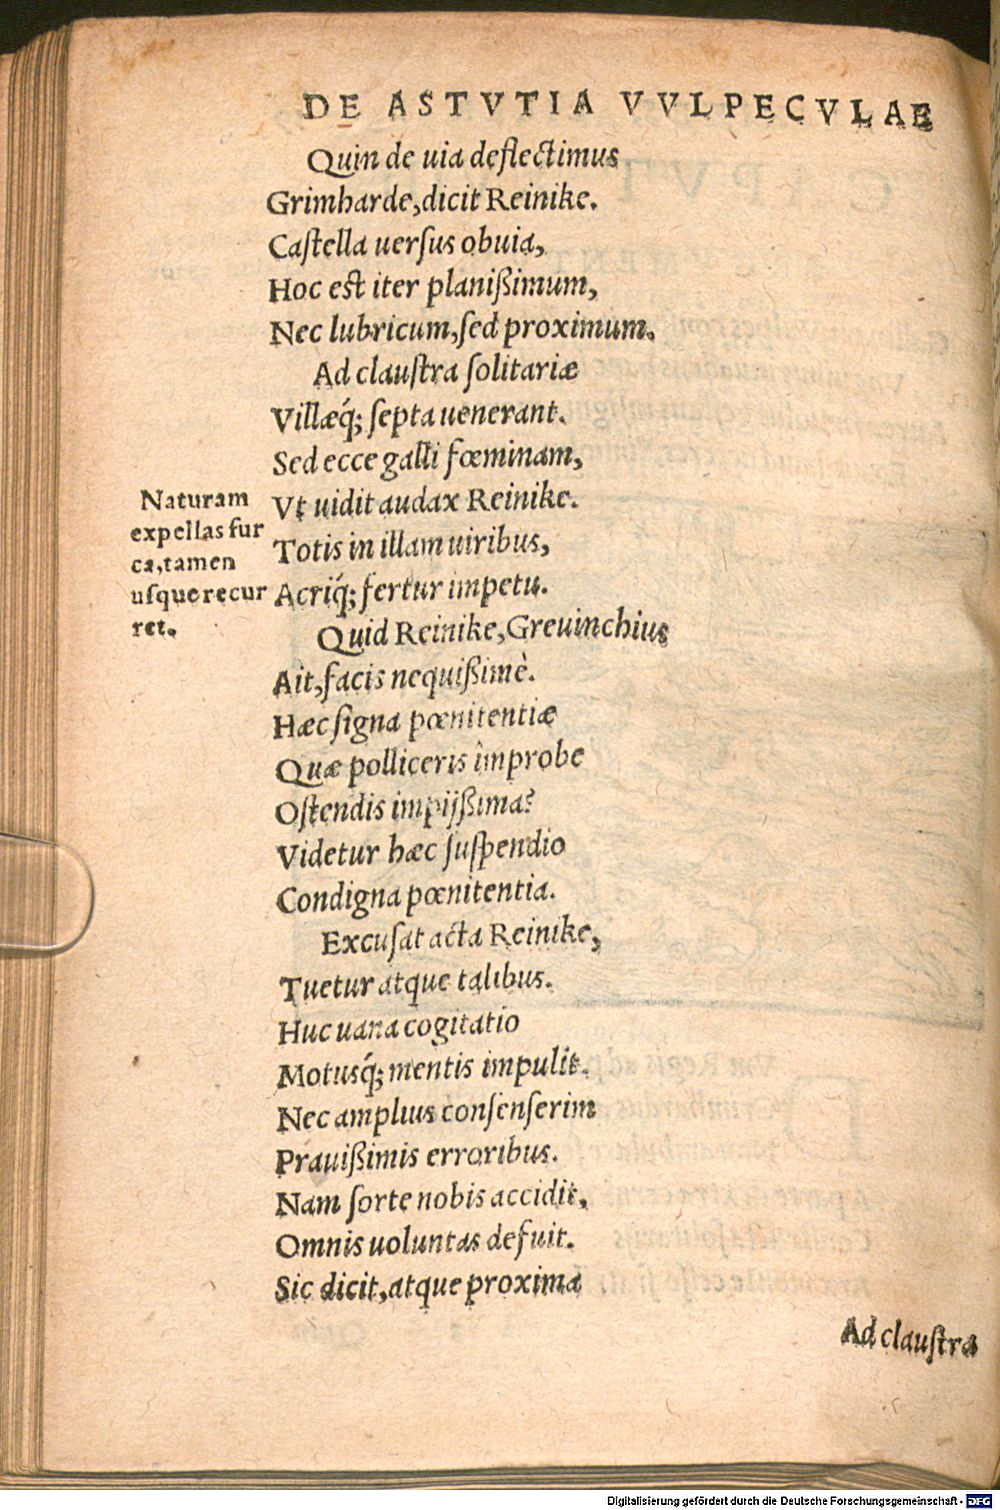 DE ASTVTIA VVLPECVLAE
Quin de uia deflectimus
Grimharde, dicit Reinike.
Caſtella uerſus obuia,
Hoc est iter planißimum,
Nec lubricum, ſed proximum.
Ad clauſtra ſolitariæ
Villæq́; ſepta uenerant.
Sed ecce galli fœminam,
Vt uidit audax Reinike.
Totis in illam uiribus,
Acriq́; fertur impetu.
Naturam
expellas fur
ca, tamen
uſque recur
ret.
Quid Reinike, Greuinchius
Ait, facis nequißimè.
Hæc ſigna pœnitentiæ
Quæ polliceris improbe
Oſtendis impijßima?
Videtur hæc ſuſpendio
Condigna pœnitentia.
Excuſat acta Reinike,
Tuetur atque talibus.
Huc uana cogitatio
Motusq́; mentis impulit.
Nec amplius conſenſerim
Prauißimis erroribus.
Nam ſorte nobis accidit,
Omnis uoluntas defuit.
Sic dicit, atque proxima
Ad clauſtra
Digitalisierung gefördert durch die Deutsche Forschungsgemeinschaft - DFG